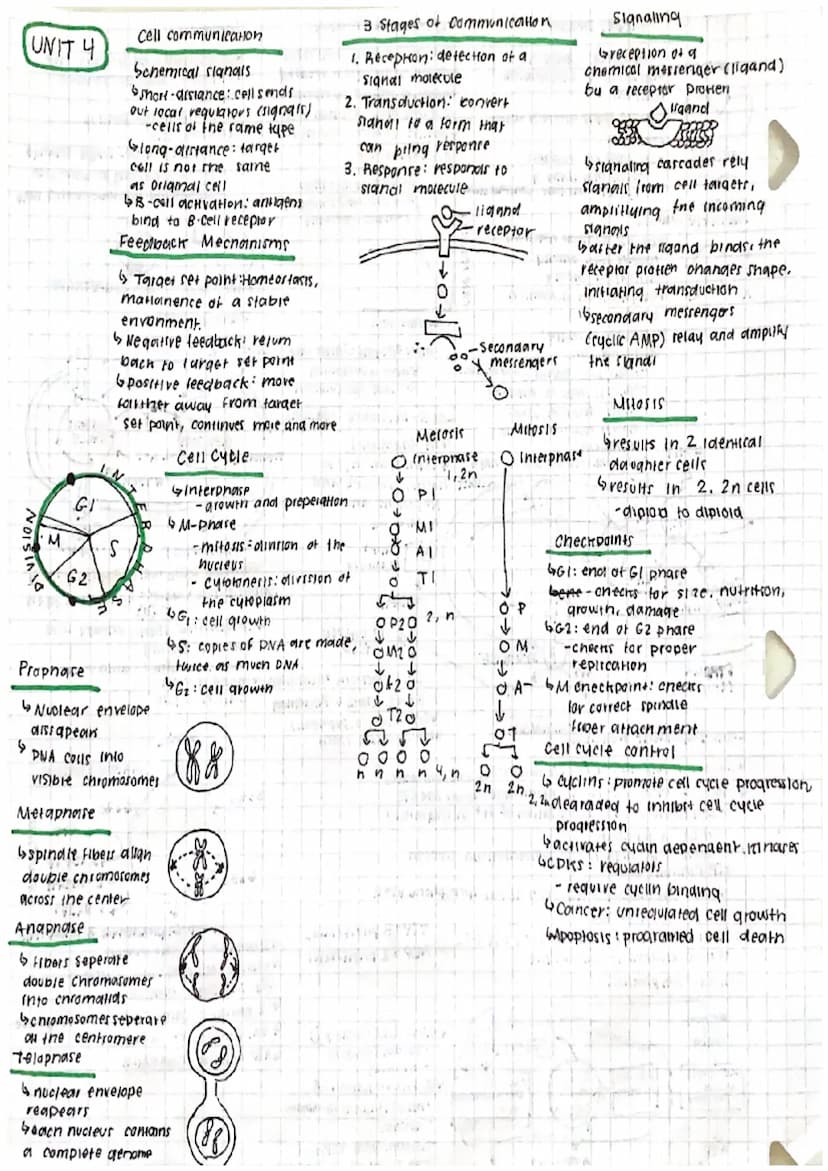 UNIT 4
Cell communication
↳chemical signals
↳short-distance: cell sends
out local regulators (signals)
-cells of the same type
↳long-distance: target
cell is not the same
as original cell
↳B-cell activation: antigens
bind to B-cell receptor
Feedback Mechanisms
↳ Target set point: Homeostasis,
maitainence of a stable
envonment.
↳ Negative feedback: return
back to target set point
↳positive feedback: more
farther away from target
set point, continues more and more
3 Stages of Communication
1. Reception: detection of a
signal molecule
2. Transduction: convert
signal to a form that
can bring response
3. Response: responds to
signal molecule
ligand
receptor
Secondary
messengers
Signaling
↳reception of a
chemical messenger (ligand)
by a receptor protien
ligand
↳signaling cascades rely
signals from cell targets,
amplifying the incoming
signals
↳after the ligand binds, the
receptor protien changes shape,
initiating transduction
↳secondary messengers
(cyclic AMP) relay and amplify
the signal
Cell Cycle
INTERPHASE
DIVISION
G1
S
G2
M
↳Interphase
-growth and preperation
↳M-phase
-mitosis: division of the
nucleus
- cytokinesis: division of
the cytoplasm
↳G1: cell growth
↳S: copies of DNA are made,
twice as much DNA
↳G2: cell growth
Meiosis
Interphase
1, 2n
P1
M1
A1
T1
P2
2, n
M2
A2
T2
n n n n 4, n
Mitosis
Interphase
P
M
A
T
2n 2n
2, 2n
Mitosis
↳results in 2 identical
daughter cells
↳results in 2, 2n cells
-diploid to diploid
Checkpoints
↳G1: end of G1 phase
-checks for size, nutrition,
growth, damage
↳G2: end of G2 phase
-checks for proper
replication
↳M checkpoint: checks
for correct spindle
fiber attachment
Cell cycle control
↳ cyclins: promote cell cycle progression
degraded to inhibit cell cycle
progression
↳activates cyclin dependent kinases
↳CDKs: regulators
- require cyclin binding
↳Cancer: unregulated cell growth
↳Apoptosis: programed cell death
Prophase
↳ Nuclear envelope
dissapears
↳ DNA coils into
visible chromosomes
Metaphase
↳spindle fibers align
double chromosomes
across the center
Anaphase
↳ Fibers seperate
double chromosomes
into chromatids
↳chromosomes seperate
at the centromere
Telophase
↳ nuclear envelope
reapears
↳each nucleus contains
a complete genome